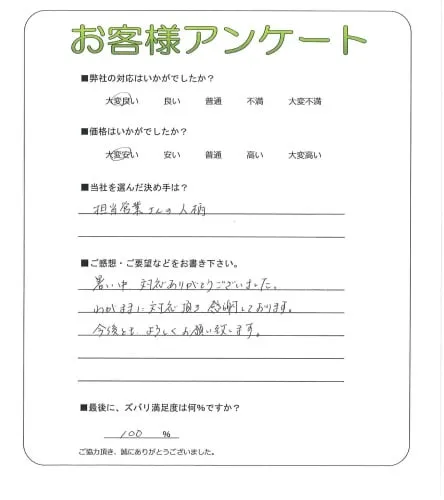 お客様アンケート
■弊社の対応はいかがでしたか？
大変良い 良い 普通 不満 大変不満
■価格はいかがでしたか？
大変安い 安い 普通 高い 大変高い
■当社を選んだ決め手は？
担当営業さんの人柄
■ご感想・ご要望などをお書き下さい。
暑い中 対応ありがとうございました。
わがままに対応頂き感謝しております。
今後とも よろしくお願い致します。
■最後に、ズバリ満足度は何%ですか？
100 %
ご協力頂き、誠にありがとうございました。